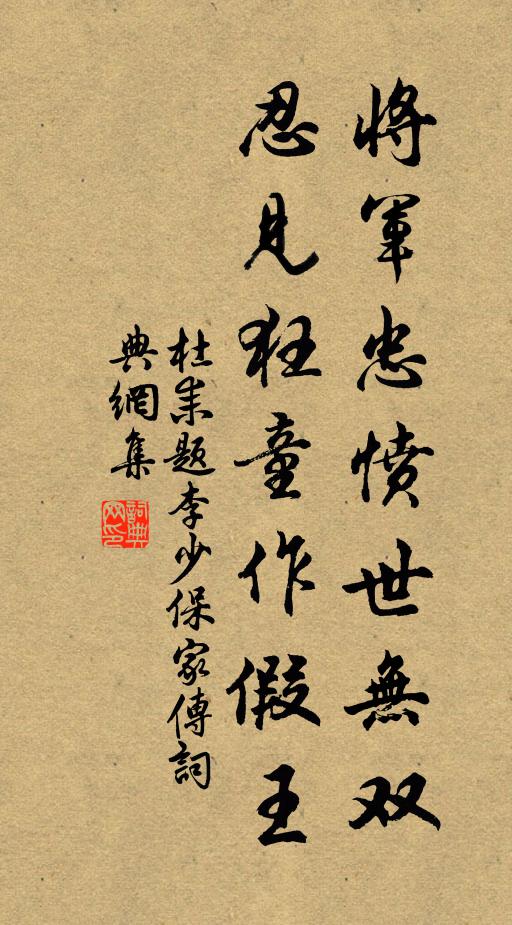 將軍忠憤世無双
忍見狂童作假王
杜耒題李少保家傳詞
典網集
詞典网印